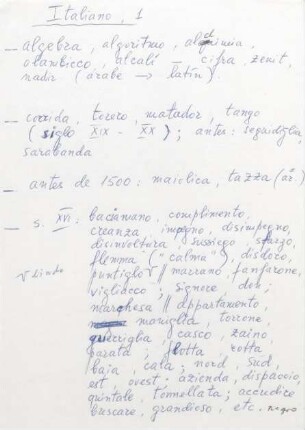 Italiano, 1
— algebra, algoritmo, alchimia,
alambicco, alcali, cifra, zenit,
nadir (árabe → latín)
— corrida, torero, matador, tango
(siglo XIX - XX); antes: seguidiglia,
sarabanda
— antes de 1500: maiolica, tazza (ár.)
— s. XVI: baciamano, complimento,
creanza, impegno, disimpegno,
disinvoltura, sussiego, sforzo,
flemma ("calma"), disdoro,
puntiglio √ // marrano, fanfarone,
√ lindo
vigliacco; signore, don;
marchesa // appartamento,
maniglia, torrone,
guerriglia, casco, zaino
parata; flotta, rotta
baia, cala; nord, sud,
est, ovest, azienda, dispaccio,
quintale, tonnellata; accudire
buscare, grandioso, etc. negro